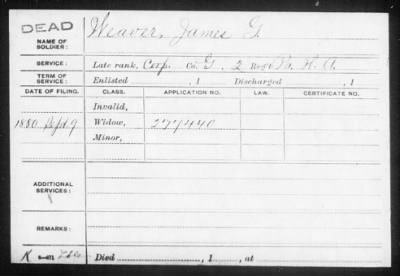 DEAD
NAME OF SOLDIER: Weaver, James G.
SERVICE: Late rank, Corp. Co. G. 2 Reg't Pa. H. A.
TERM OF SERVICE: Enlisted , 1 Discharged , 1
DATE OF FILING. CLASS. APPLICATION NO. LAW. CERTIFICATE NO.
Invalid,
1880 Sept 9 Widow, 277440
Minor,
ADDITIONAL SERVICES:
REMARKS:
K Died , 1 , at